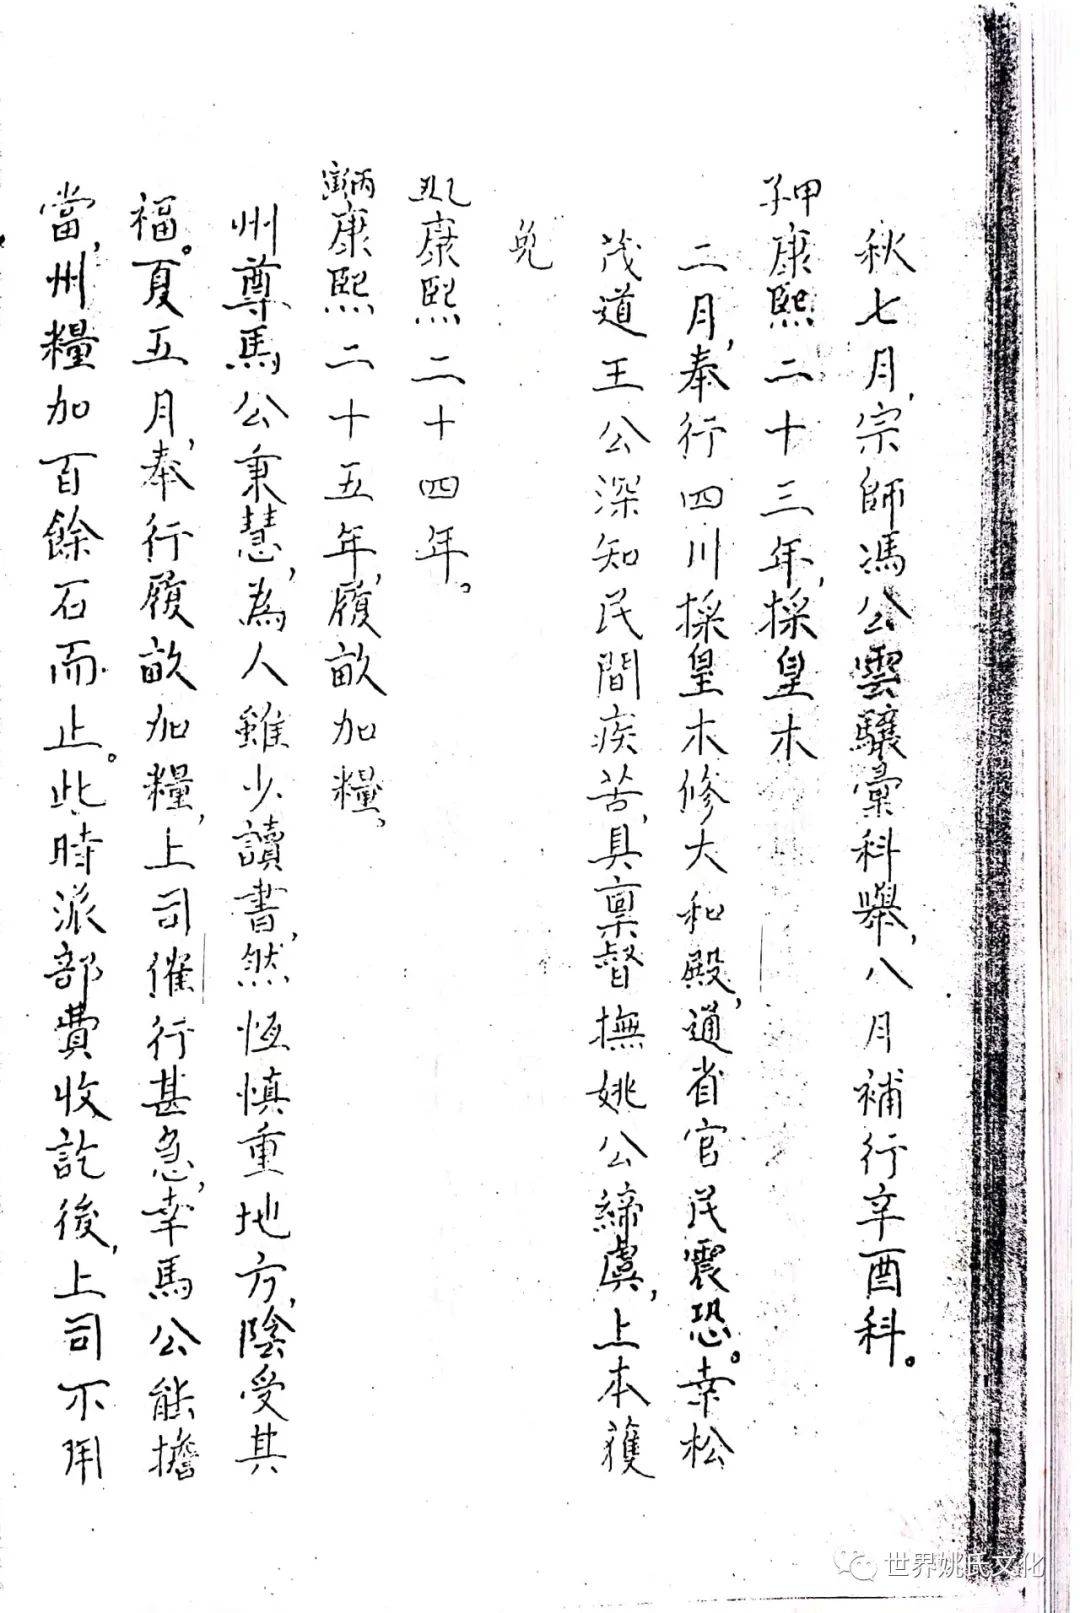 秋七月,宗師馮公雲驤彙科舉,八月補行辛酉科。
甲子康熙二十三年,採皇木
二月,奉行四川採皇木修大和殿,通省官民震恐。幸松
茂道王公深知民間疾苦,具稟督撫姚公締虞,上本獲
免
乙丑康熙二十四年。
丙寅康熙二十五年,履畝加糧,
州尊馬公秉慧,為人雖少讀書,然恆慎重地方,陰受其
福。夏五月,奉行履畝加糧,上司催行甚急,幸馬公能擔
當,州糧加百餘石而止。此時派部費收訖後,上司不用
世界姚氏文化